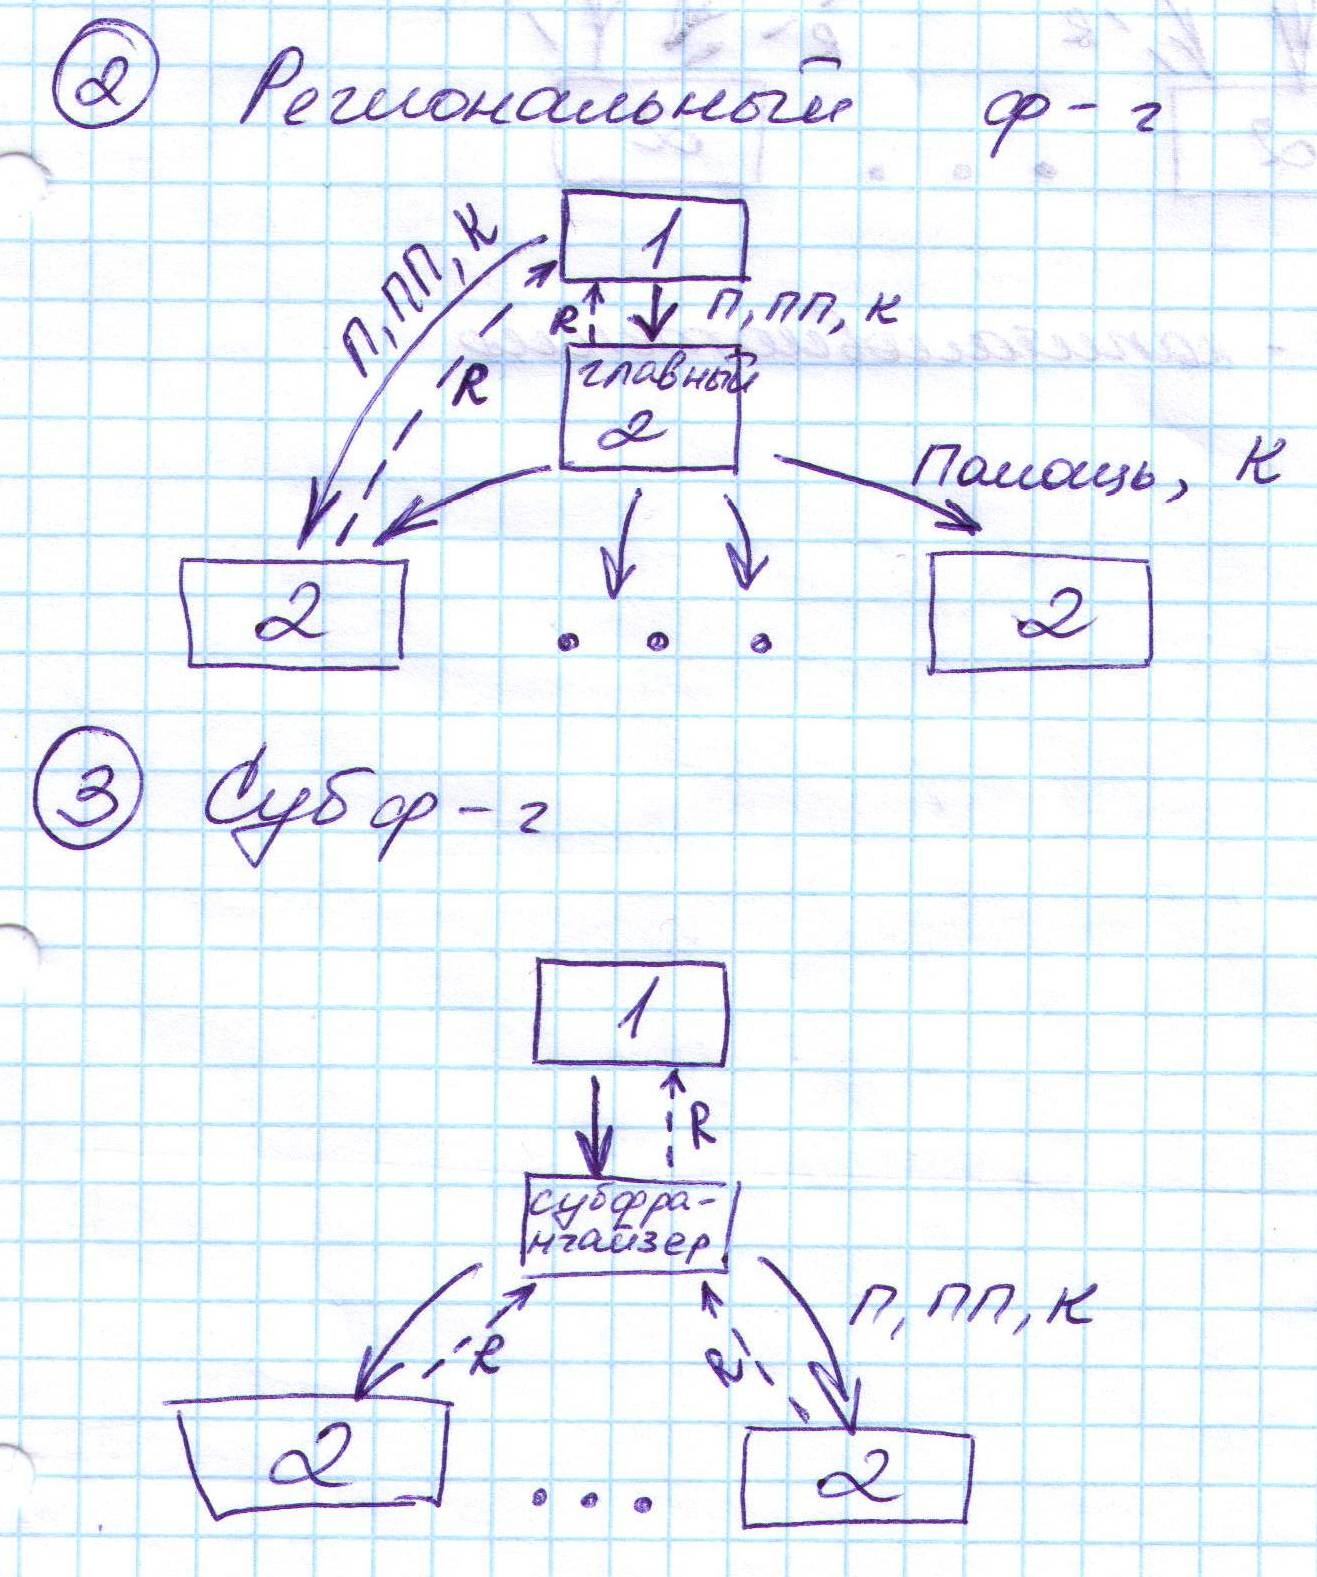 2 Региональный ф-г
1
П, ПП, К
R
П, ПП, К
R
главный
2
Помощь, К
2
2
3 Субф-г
1
R
субфра-
нчайзер
П, ПП, К
R
R
2
2